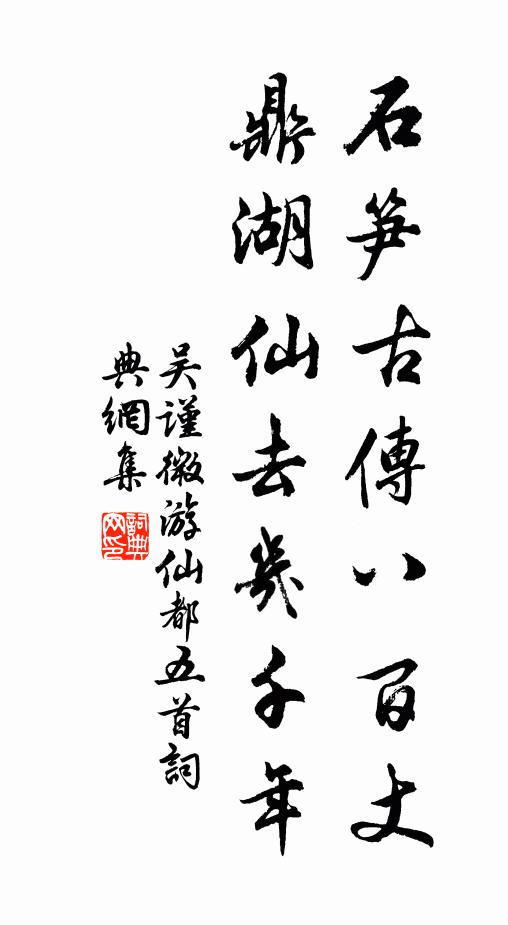 石笋古傳八百丈
鼎湖仙去幾千年
吴謹微游仙都五首詞
典網集
詞典网印